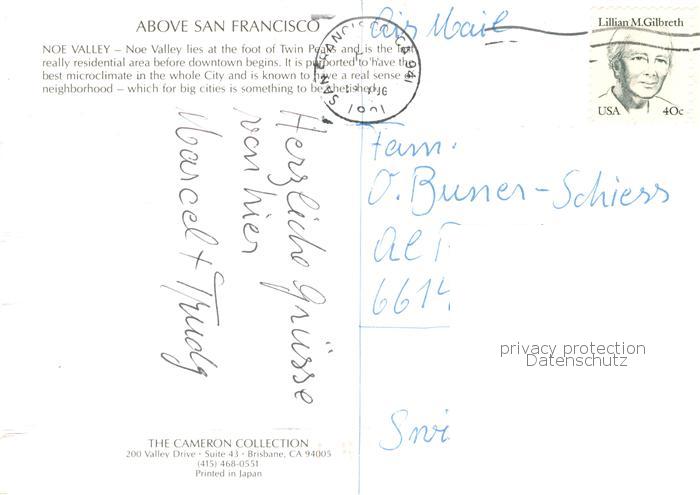 ABOVE SAN FRANCISCO
NOE VALLEY – Noe Valley lies at the foot of Twin Peaks and is the last
really residential area before downtown begins. It is purported to have the
best microclimate in the whole City and is known to have a real sense of
neighborhood – which for big cities is something to be cherished.
Herzliche Grüsse
von hier
Marcel + Trudy
THE CAMERON COLLECTION
200 Valley Drive • Suite 43 • Brisbane, CA 94005
(415) 468-0551
Printed in Japan
SAN FRANCISCO CA 941
Air Mail
Lillian M. Gilbreth
USA 40c
Fam.
O. Buner-Schiess
6614
privacy protection
Datenschutz